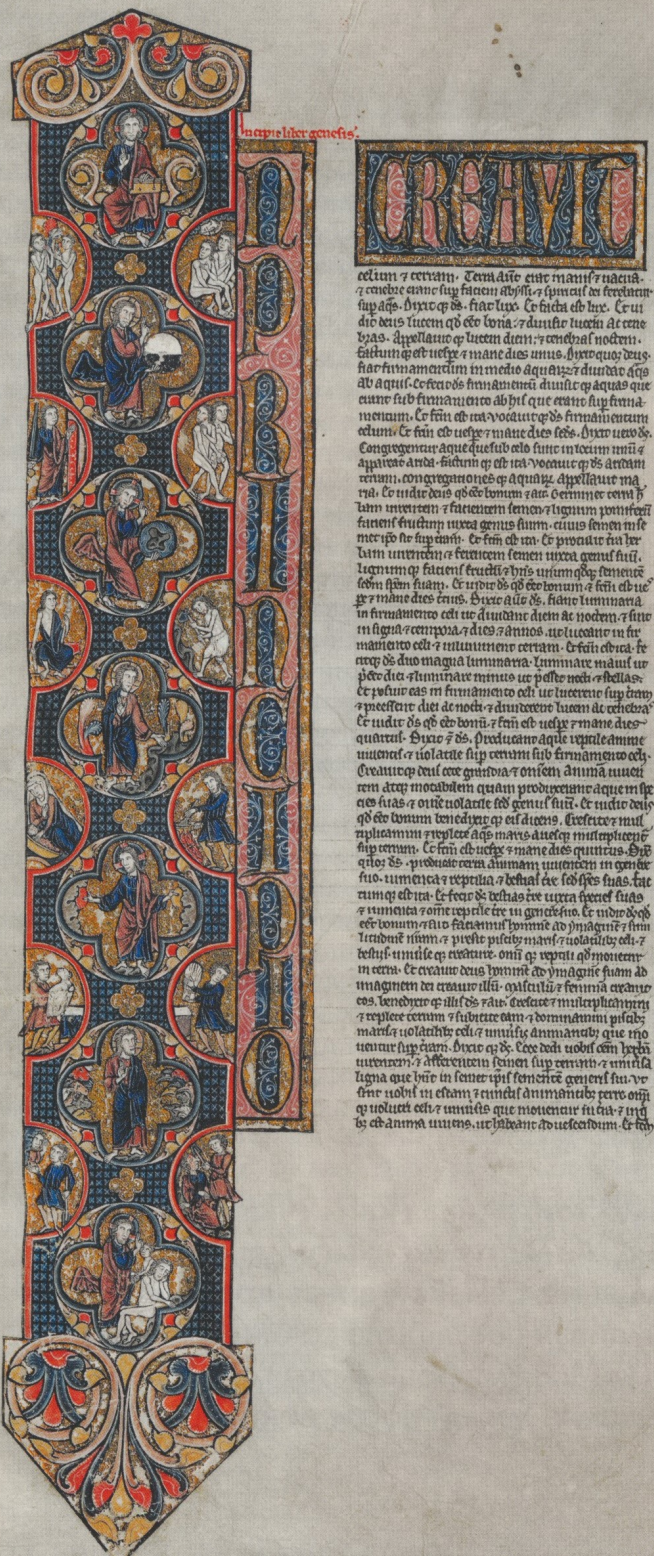 Incipit liber genesis.
IN PRINCIPIO
CREAVIT
celum ⁊ terram. Terra aut̄ erat inanis ⁊ uacua.
⁊ tenebre erant sup faciem abyssi. ⁊ spiritus dei ferebatur
sup aq̄s. Dixit q; ds̄. fiat lux. Et facta est lux. Et ui
dit deus lucem qd̄ eēt bona: ⁊ diuisit lucem ac tene
bras. Appellauit q; lucem diem: ⁊ tenebras noctem.
factum q; est uesꝑe ⁊ mane dies unus. Dixit quoq; deus.
fiat firmamentum in medio aquarꝝ: ⁊ diuidat aq̄s
ab aquis. Et fecit ds̄ firmamentū diuisit q; aquas que
erant sub firmamento ab his que erant sup firma
mentum. Et fc̄m est ita. vocauit q; ds̄ firmamentum
celum. Et fc̄m est uesꝑe ⁊ mane dies sc̄ds. Dixit uero ds̄.
Congregentur aque que sub celo sunt in locum unū ⁊
appareat arida. factum q; est ita. vocauit q; ds̄ aridam
terram. congregationes q; aquarꝝ appellauit ma
ria. Et uidit deus qd̄ eēt bonum ⁊ ait. Germinet terra h̄
bam uirentem ⁊ facientem semen: ⁊ lignum pomiferū
faciens fructum iuxta genus suum. cuius semen in se
met ip̄o sit sup terram. Et fc̄m est ita. Et protulit tr̄a her
bam uirentem ⁊ ferentem semen iuxta genus suū.
lignum q; faciens fructū ⁊ hn̄s unum qdq; sementē
sc̄dm spēm suam. Et uidit ds̄ qd̄ eēt bonum ⁊ fc̄m est ues
ꝑe ⁊ mane dies tcius. Dixit aut̄ ds̄. fiant luminaria
in firmamento celi ut diuidant diem ac noctem. ⁊ sint
in signa ⁊ tempora. ⁊ dies ⁊ annos. ut luceant in fir
mamento celi ⁊ illuminent terram. Et fc̄m est ita. fe
cit q; ds̄ duo magna luminaria. luminare maius ut
p̄eēt diei ⁊ luminare minus ut p̄eēt nocti ⁊ stellas.
Et posuit eas in firmamento celi ut lucerent sup tr̄am
⁊ preessent diei ac nocti ⁊ diuiderent lucem ac tenebras.
Et uidit ds̄ qd̄ eēt bonū. ⁊ fc̄m est uesꝑe ⁊ mane dies
quartus. Dixit ⁊ ds̄. Producant aque reptile anime
uiuentis ⁊ uolatile sup terram sub firmamento celi.
Creauit q; deus cete grandia ⁊ omnem animā uiuen
tem atq; motabilem quam produxerant aque in spe
cies suas ⁊ omne uolatile sc̄d genus suū. Et uidit deus
qd̄ eēt bonum benedixit q; eis dicens. Crescite ⁊ mul
tiplicamini ⁊ replete aq̄s maris auesq; multiplicent̄
sup terram. Et fc̄m est uesꝑe ⁊ mane dies quintus. Dix̄
quoq; ds̄. producat terra animam uiuentem in genere
suo. iumenta ⁊ reptilia. ⁊ bestias tr̄e sc̄d sp̄es suas. fac
tum q; est ita. Et fecit ds̄ bestias tr̄e iuxta species suas
⁊ iumenta ⁊ om̄e reptile tr̄e in genere suo. Et uidit ds̄ qd̄
eēt bonum ⁊ ait. faciamus hominē ad ymaginē ⁊ simi
litudinē nr̄am. ⁊ presit piscib; maris ⁊ uolatilib; celi. ⁊
bestiis uniuse q; creature. omi q; reptili qd̄ mouetur
in terra. Et creauit deus hominē ad ymaginē suam ad
imaginem dei creauit illū. Masculū ⁊ femina creauit
eos. benedixit q; illis ds̄ ⁊ ait. Crescite ⁊ multiplicamini
⁊ replete terram ⁊ subicite eam. ⁊ dominamini piscib;
maris ⁊ uolatilib; celi ⁊ uniuis animantib; que mo
uentur sup tr̄am. Dixit q; ds̄. Ecce dedi uobis oēm herbā
uirentem. ⁊ afferentem semen sup terram. ⁊ uniuersa
ligna que hn̄t in semet ip̄is sementē generis sui. vt
sint uobis in escam ⁊ cunctis animantib; terre. omi
q; uolucri celi. ⁊ uniuis que mouentur in terra. ⁊ in q
b; est anima uiuens. ut habeant ad uescendum. Et fc̄m